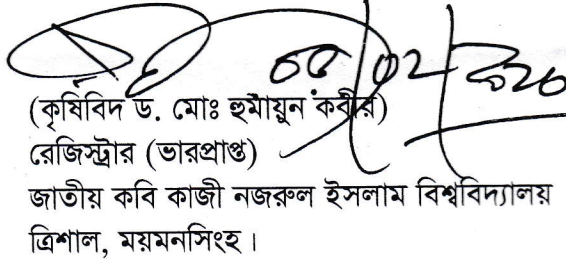 (কৃষিবিদ ড. মোঃ হুমায়ুন কবীর)
রেজিস্ট্রার (ভারপ্রাপ্ত)
জাতীয় কবি কাজী নজরুল ইসলাম বিশ্ববিদ্যালয়
ত্রিশাল, ময়মনসিংহ।